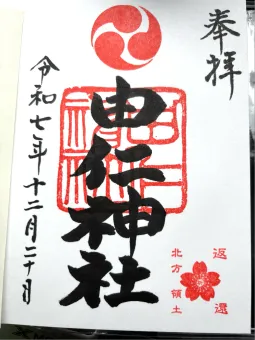 奉拝
由仁神社
令和七年十二月二十日
返還
北方領土